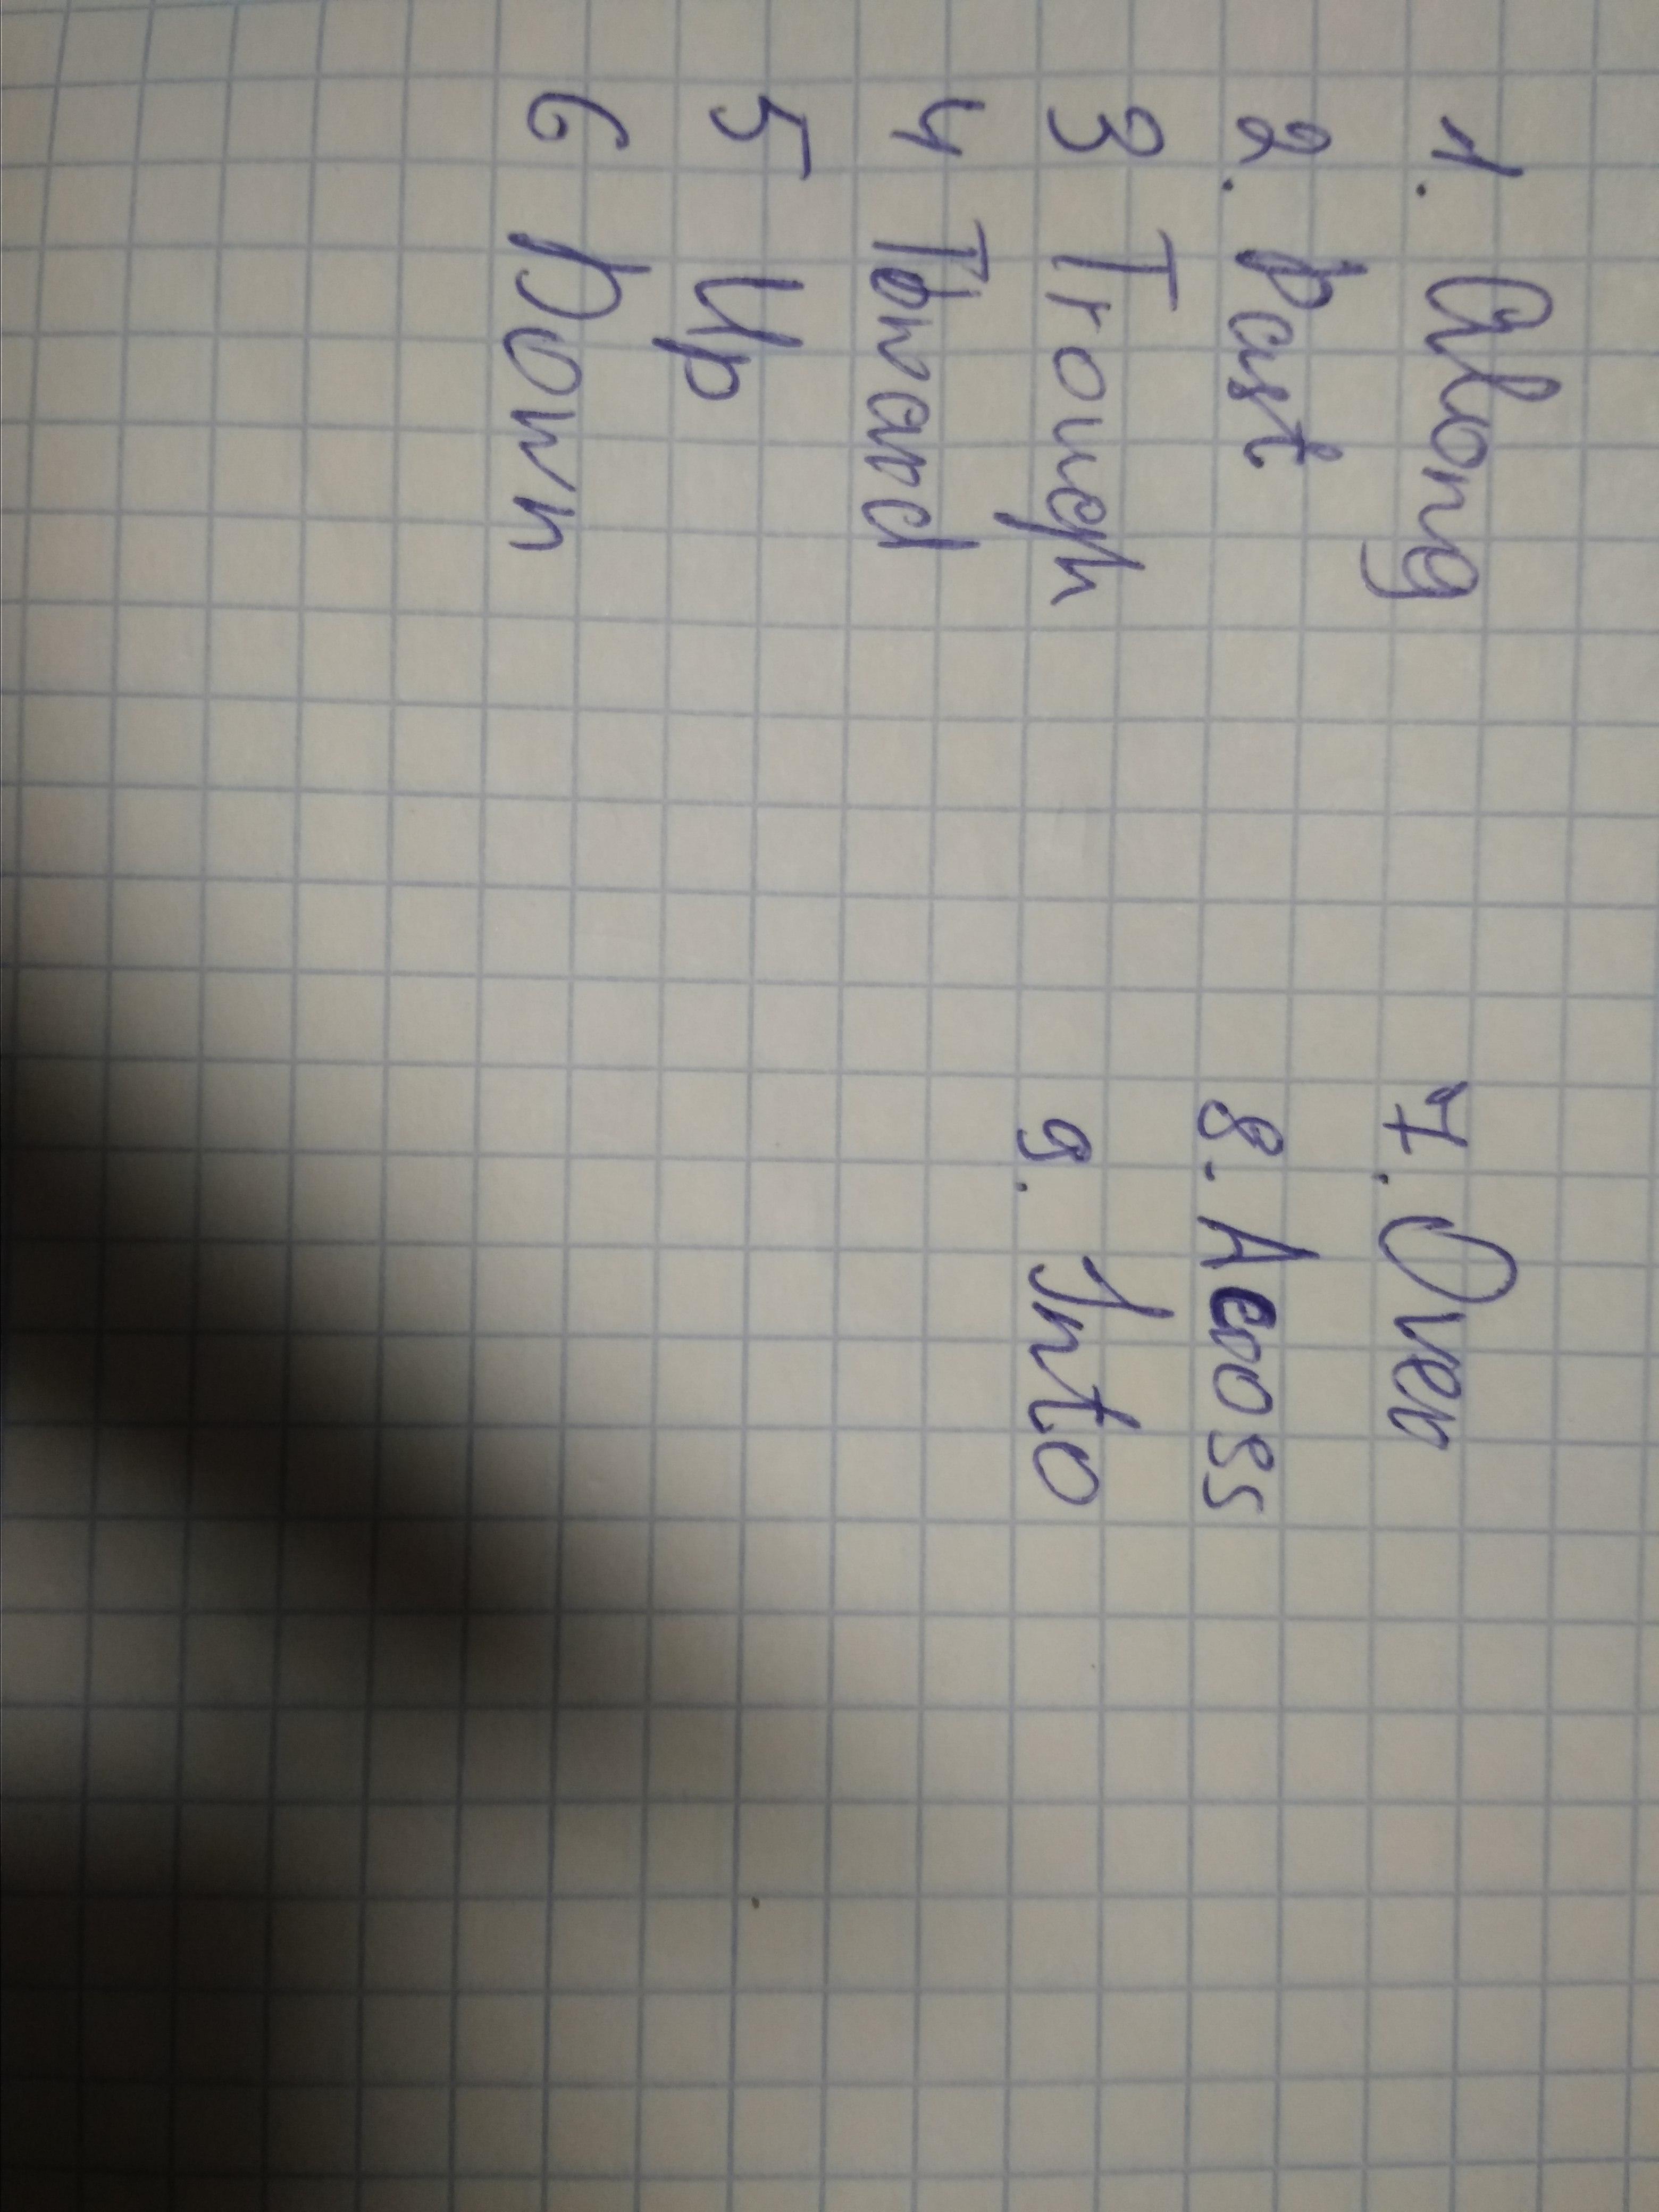 1. Along
2. Past
3 Trough
4 Toward
5 Up
6 Down
7. Over
8. Across
9. Into